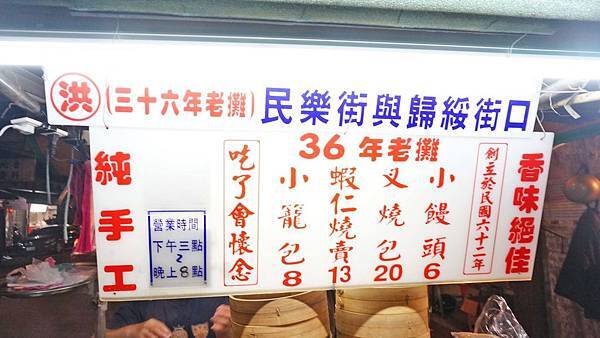 洪(三十六年老攤)民樂街與歸綏街口
36年老攤
香味絕佳
創立於民國六十二年
小饅頭6
叉燒包20
蝦仁燒賣13
小籠包8
吃了會懷念
營業時間
下午三點
~
晚上8點
純手工